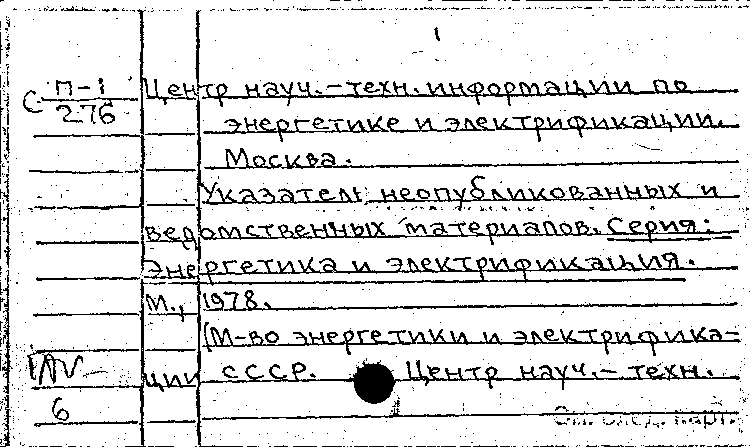 1
С П-1 Центр науч.-техн. информации по
276 энергетике и электрификации.
Москва.
Указатель неопубликованных и
ведомственных материалов. Серия:
Энергетика и электрификация.
М., 1978.
(М-во энергетики и электрифика-
ции СССР. Центр науч.-техн.
6
См. след. карт.